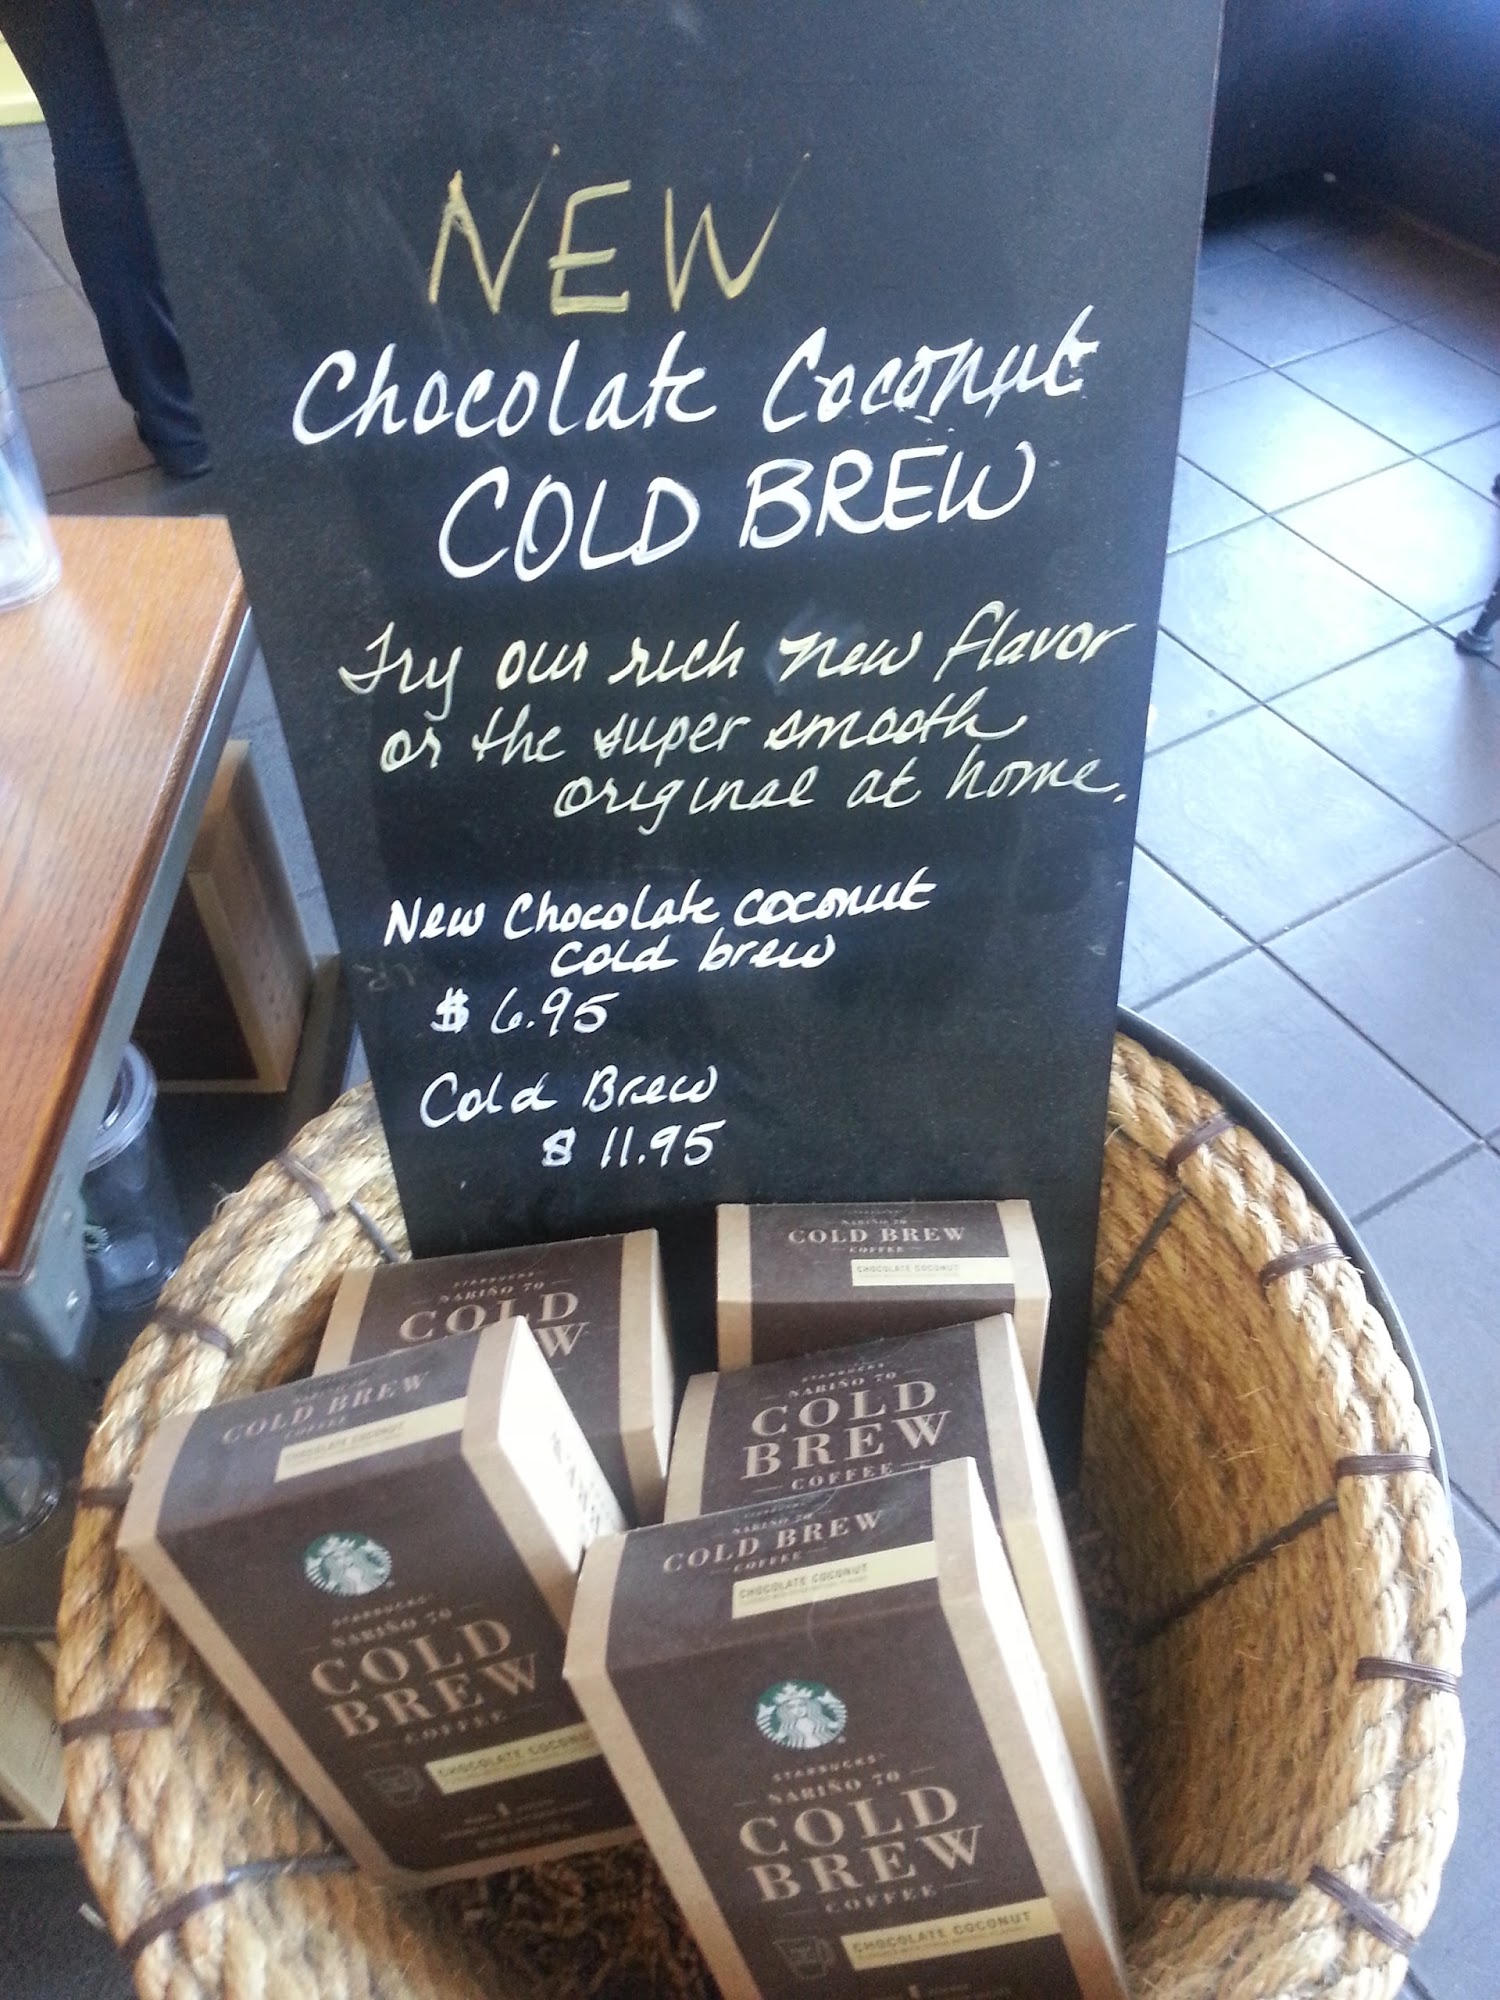 NEW
Chocolate Coconut
COLD BREW
Try our rich new flavor
or the super smooth
original at home.
New Chocolate coconut
cold brew
$ 6.95
Cold Brew
$ 11.95
NARIÑO 70
COLD BREW
COFFEE
CHOCOLATE COCONUT
STARBUCKS
NARIÑO 70
COLD
STARBUCKS
NARIÑO 70
COLD
BREW
COFFEE
COLD BREW
COFFEE
CHOCOLATE COCONUT
STARBUCKS
NARIÑO 70
COLD
BREW
COFFEE
CHOCOLATE COCONU
NARIÑO 70
COLD BREW
COFFEE
CHOCOLATE COCONUT
STARBUCKS
NARIÑO 70
COLD
BREW
COFFEE
CHOCOLATE COCONUT